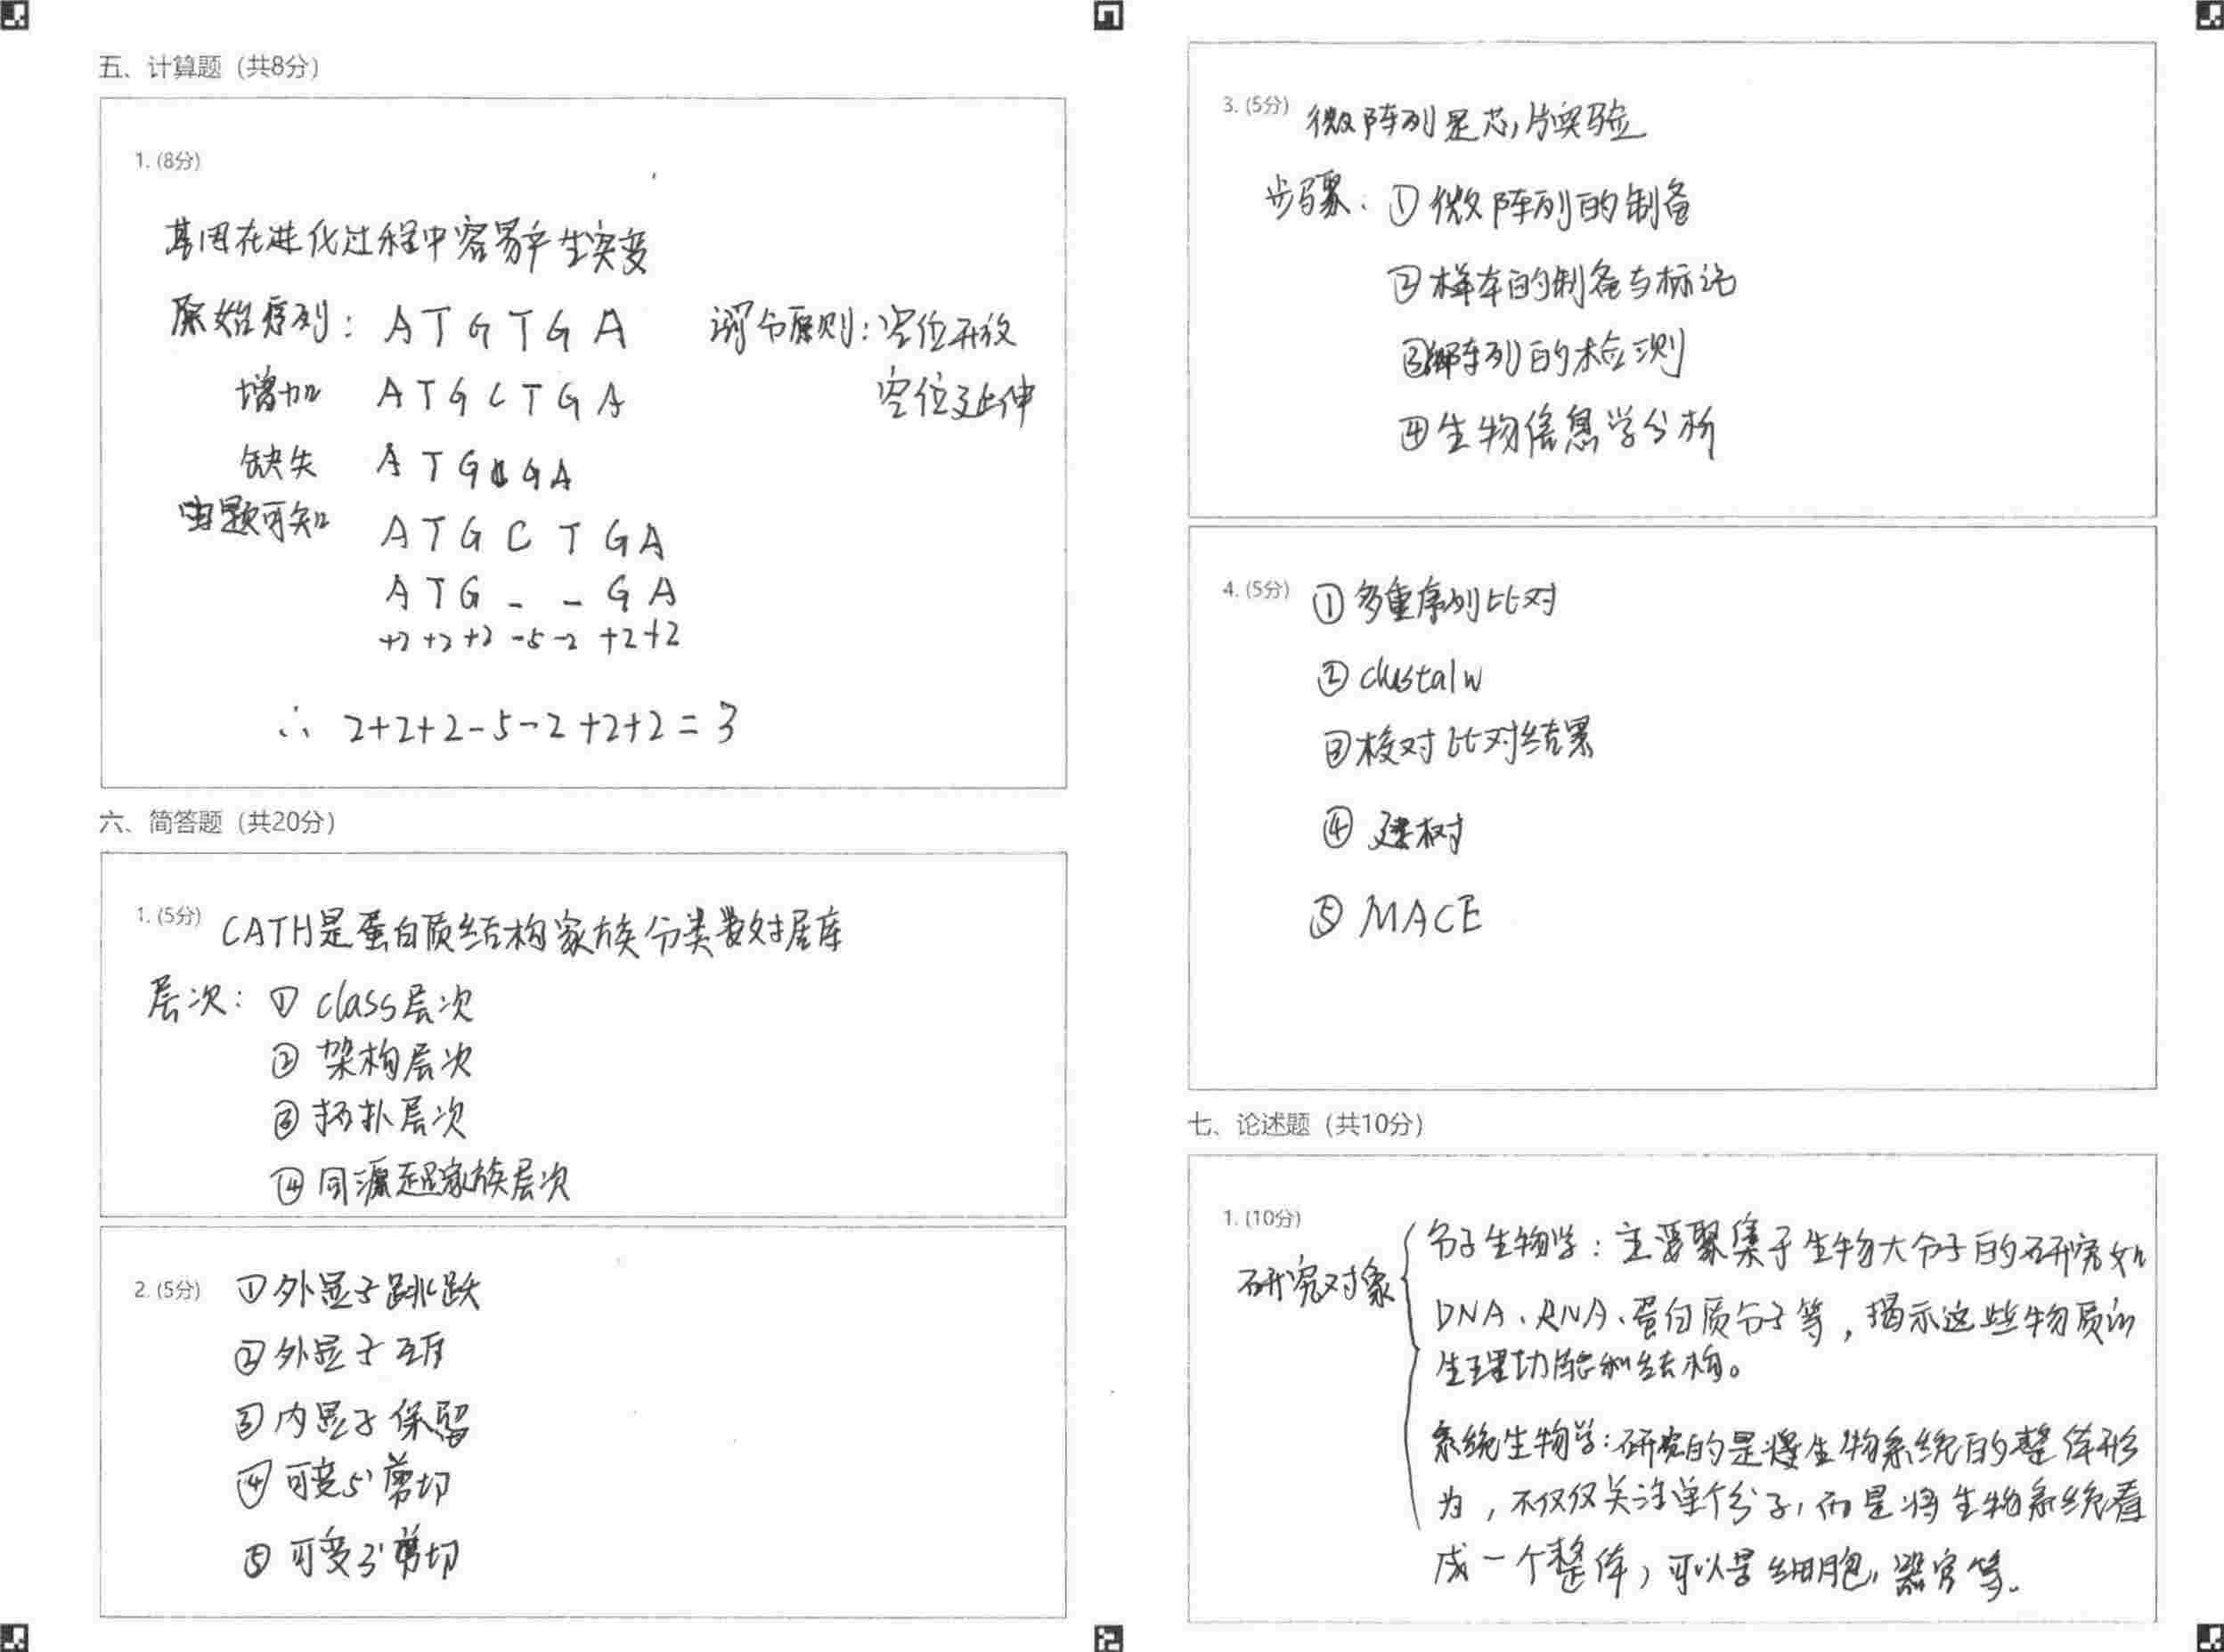 五、计算题（共8分）
1. (8分)
基因在进化过程中容易产生突变
原始序列： A T G T G A 罚分原则：空位开放
增加 A T G C T G A 空位延伸
缺失 A T G G A
由题可知 A T G C T G A
A T G _ _ G A
+2 +2 +2 -5 -2 +2 +2
∴ 2+2+2-5-2+2+2=3
六、简答题（共20分）
1. (5分) CATH是蛋白质结构家族分类数据库
层次：① class层次
② 架构层次
③ 拓扑层次
④ 同源超家族层次
2. (5分) ①外显子跳跃
②外显子互斥
③内显子保留
④可变5'剪切
⑤可变3'剪切
3. (5分) 微阵列是芯片实验
步骤：①微阵列的制备
②样本的制备与标记
③阵列的检测
④生物信息学分析
4. (5分) ①多重序列比对
② clustalw
③校对比对结果
④ 建树
⑤ MACE
七、论述题（共10分）
1. (10分)
研究对象
分子生物学：主要聚集于生物大分子的研究如
DNA、RNA、蛋白质分子等，揭示这些物质的
生理功能和结构。
系统生物学：研究的是生物系统的整体形
为，不仅仅关注单个分子，而是将生物系统看
成一个整体，可以是细胞，器官等。